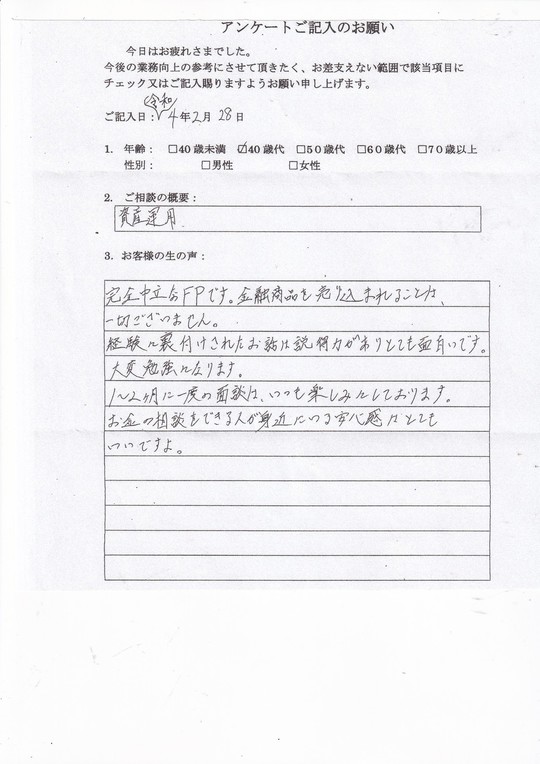 アンケートご記入のお願い
今日はお疲れさまでした。
今後の業務向上の参考にさせて頂きたく、お差支えない範囲で該当項目に
チェック又はご記入賜りますようお願い申し上げます。
令和
ご記入日：4年2月28日
1. 年齢： □40歳未満 ☑40歳代 □50歳代 □60歳代 □70歳以上
性別： □男性 □女性
2. ご相談の概要：
資産運用
3. お客様の生の声：
完全中立なFPです。金融商品を売り込まれることは、
一切ございません。
経験に裏付けされたお話は説得力がありとても面白いです。
大変勉強になります。
1〜2ヶ月に一度の面談は、いつも楽しみにしております。
お金の相談をできる人が身近にいる安心感はとても
いいですよ。